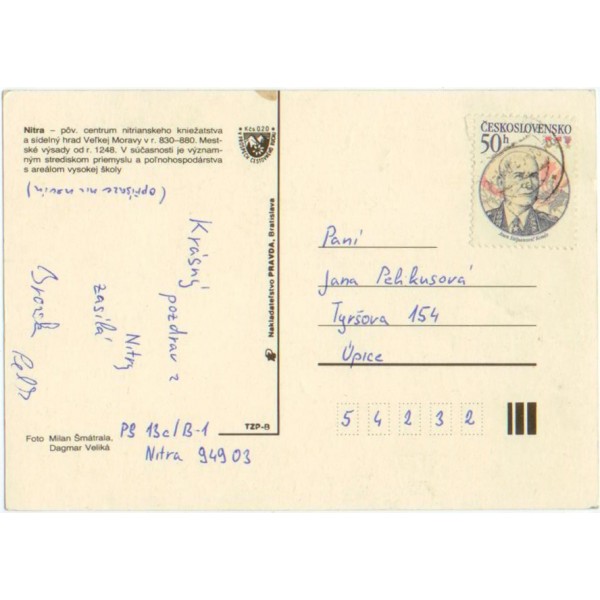 Nitra – pôv. centrum nitrianskeho kniežatstva
a sídelný hrad Veľkej Moravy v r. 830–880. Mest-
ské výsady od r. 1248. V súčasnosti je význam-
ným strediskom priemyslu a poľnohospodárstva
s areálom vysokej školy
Kčs 0.20
Krásný
pozdrav z
Nitry
zasílá
PS 13c/B-1
Nitra 949 03
Foto Milan Šmátrala,
Dagmar Veliká
TZP-B
Nakladateľstvo PRAVDA, Bratislava
ČESKOSLOVENSKO
50 h
Paní
Jana Pelikusová
Tyršova 154
Úpice
5 4 2 3 2